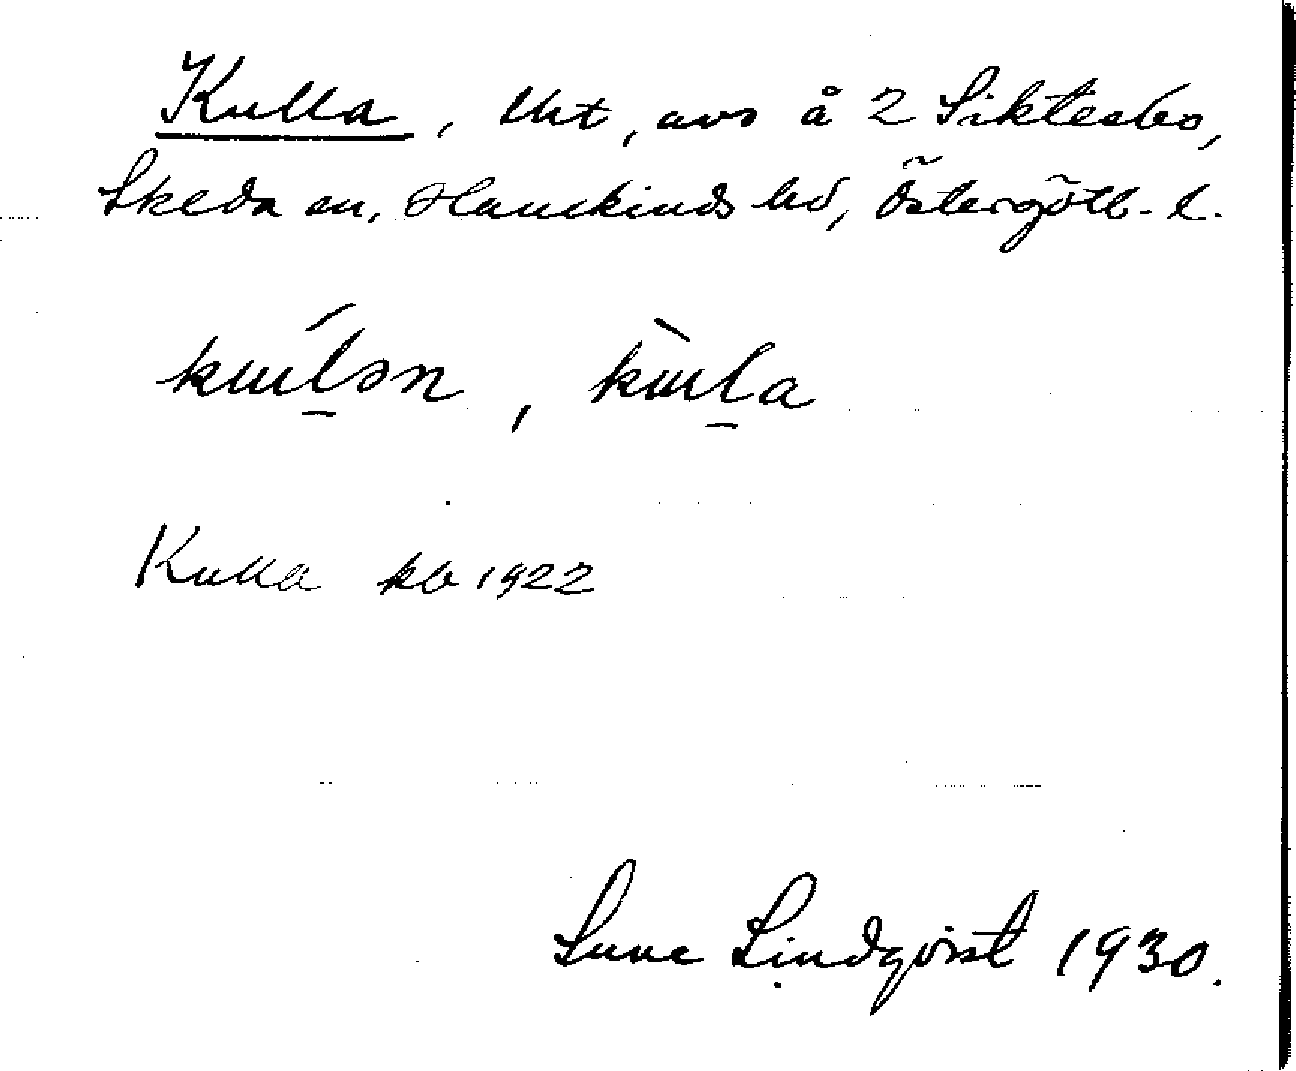 Kulla, lht, avs å 2 Siktesbo,
Skeda sn, Hanekinds hd, Östergötl. l.
kuĺ̠ən, kùl̠a
Kulla kb 1922
Sune Lindqvist 1930.